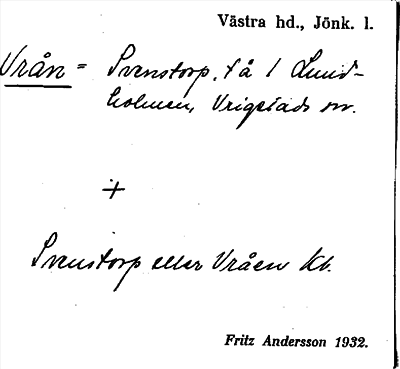 Västra hd., Jönk. l.
Vrån = Svenstorp, få 1 Lund-
holmen, Vrigstads sn.
+
Svenstorp eller Vråen Kb.
Fritz Andersson 1932.